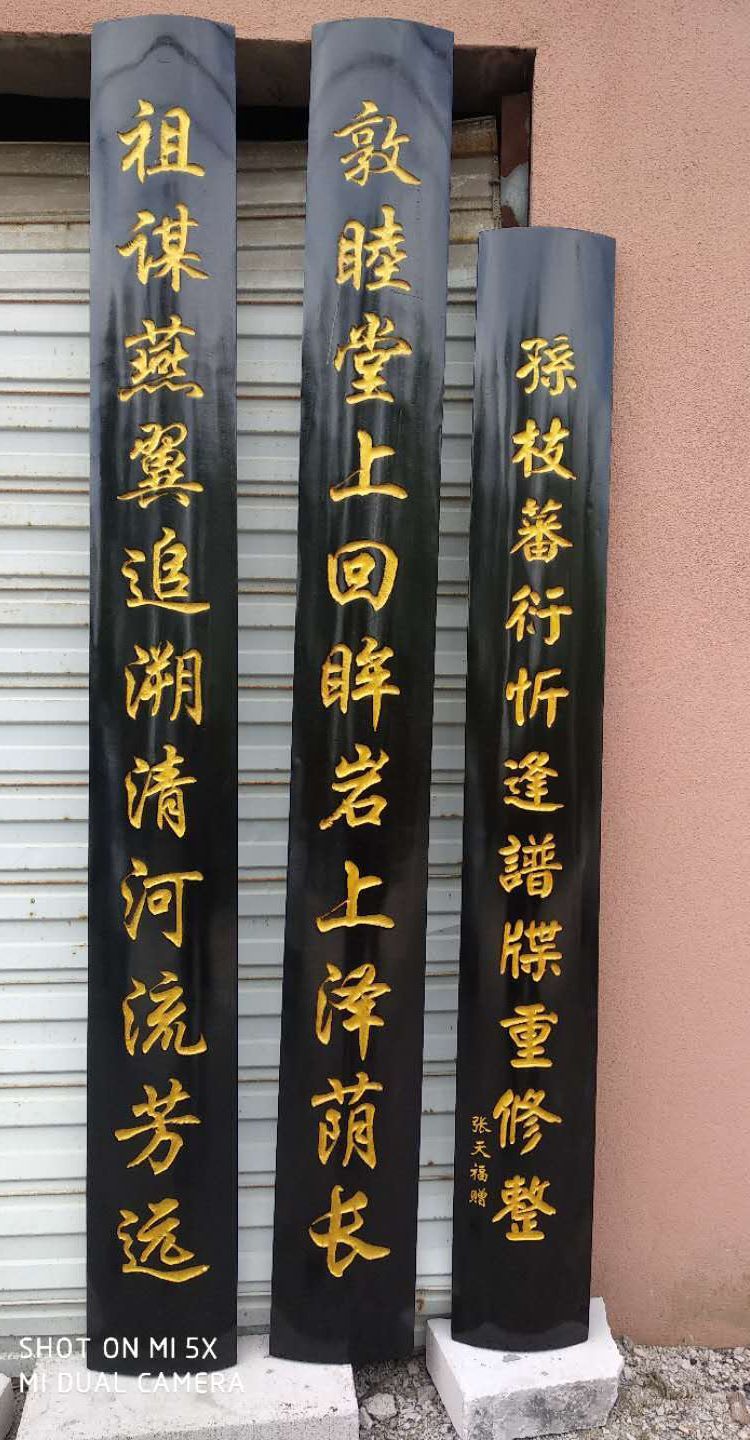 孫枝蕃衍忻逢譜牒重修整
张天福赠
敦睦堂上回眸岩上泽荫长
祖谋燕翼追溯清河流芳远
SHOT ON MI 5X
MI DUAL CAMERA